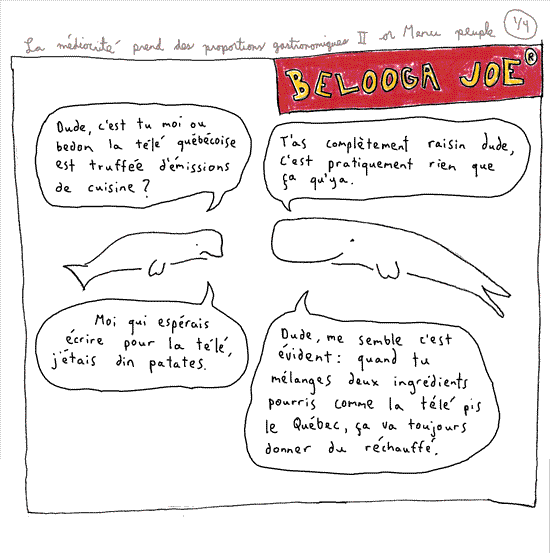 La médiocrité prend des proportions gastronomiques II or Menu peuple
1/4
BELOOGA JOE®
Dude, c'est tu moi ou
bedon la télé québécoise
est truffée d'émissions
de cuisine?
T'as complètement raisin dude,
c'est pratiquement rien que
ça qu'ya.
Moi qui espérais
écrire pour la télé,
j'étais din patates.
Dude, me semble c'est
évident: quand tu
mélanges deux ingrédients
pourris comme la télé pis
le Québec, ça va toujours
donner du réchauffé.